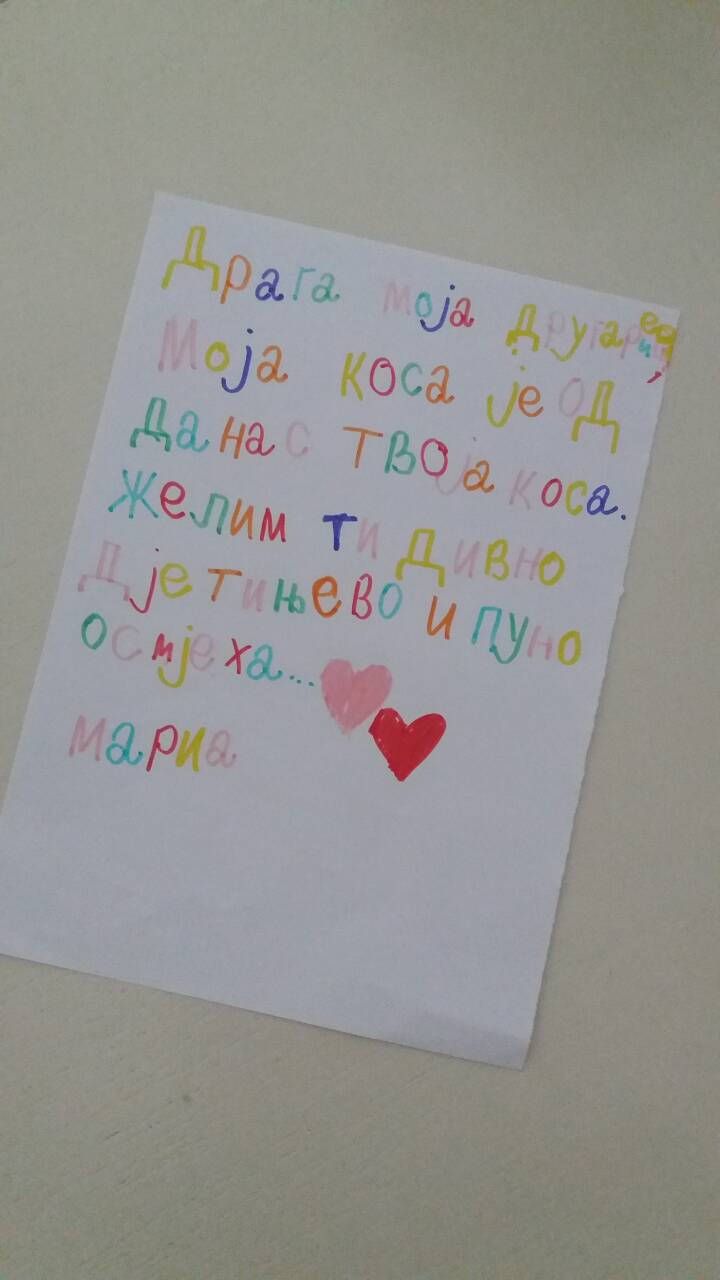 Драга моја другарице,
Моја коса је од
данас твоја коса.
Желим ти дивно
дјетињево и пуно
осмјеха...
мариа